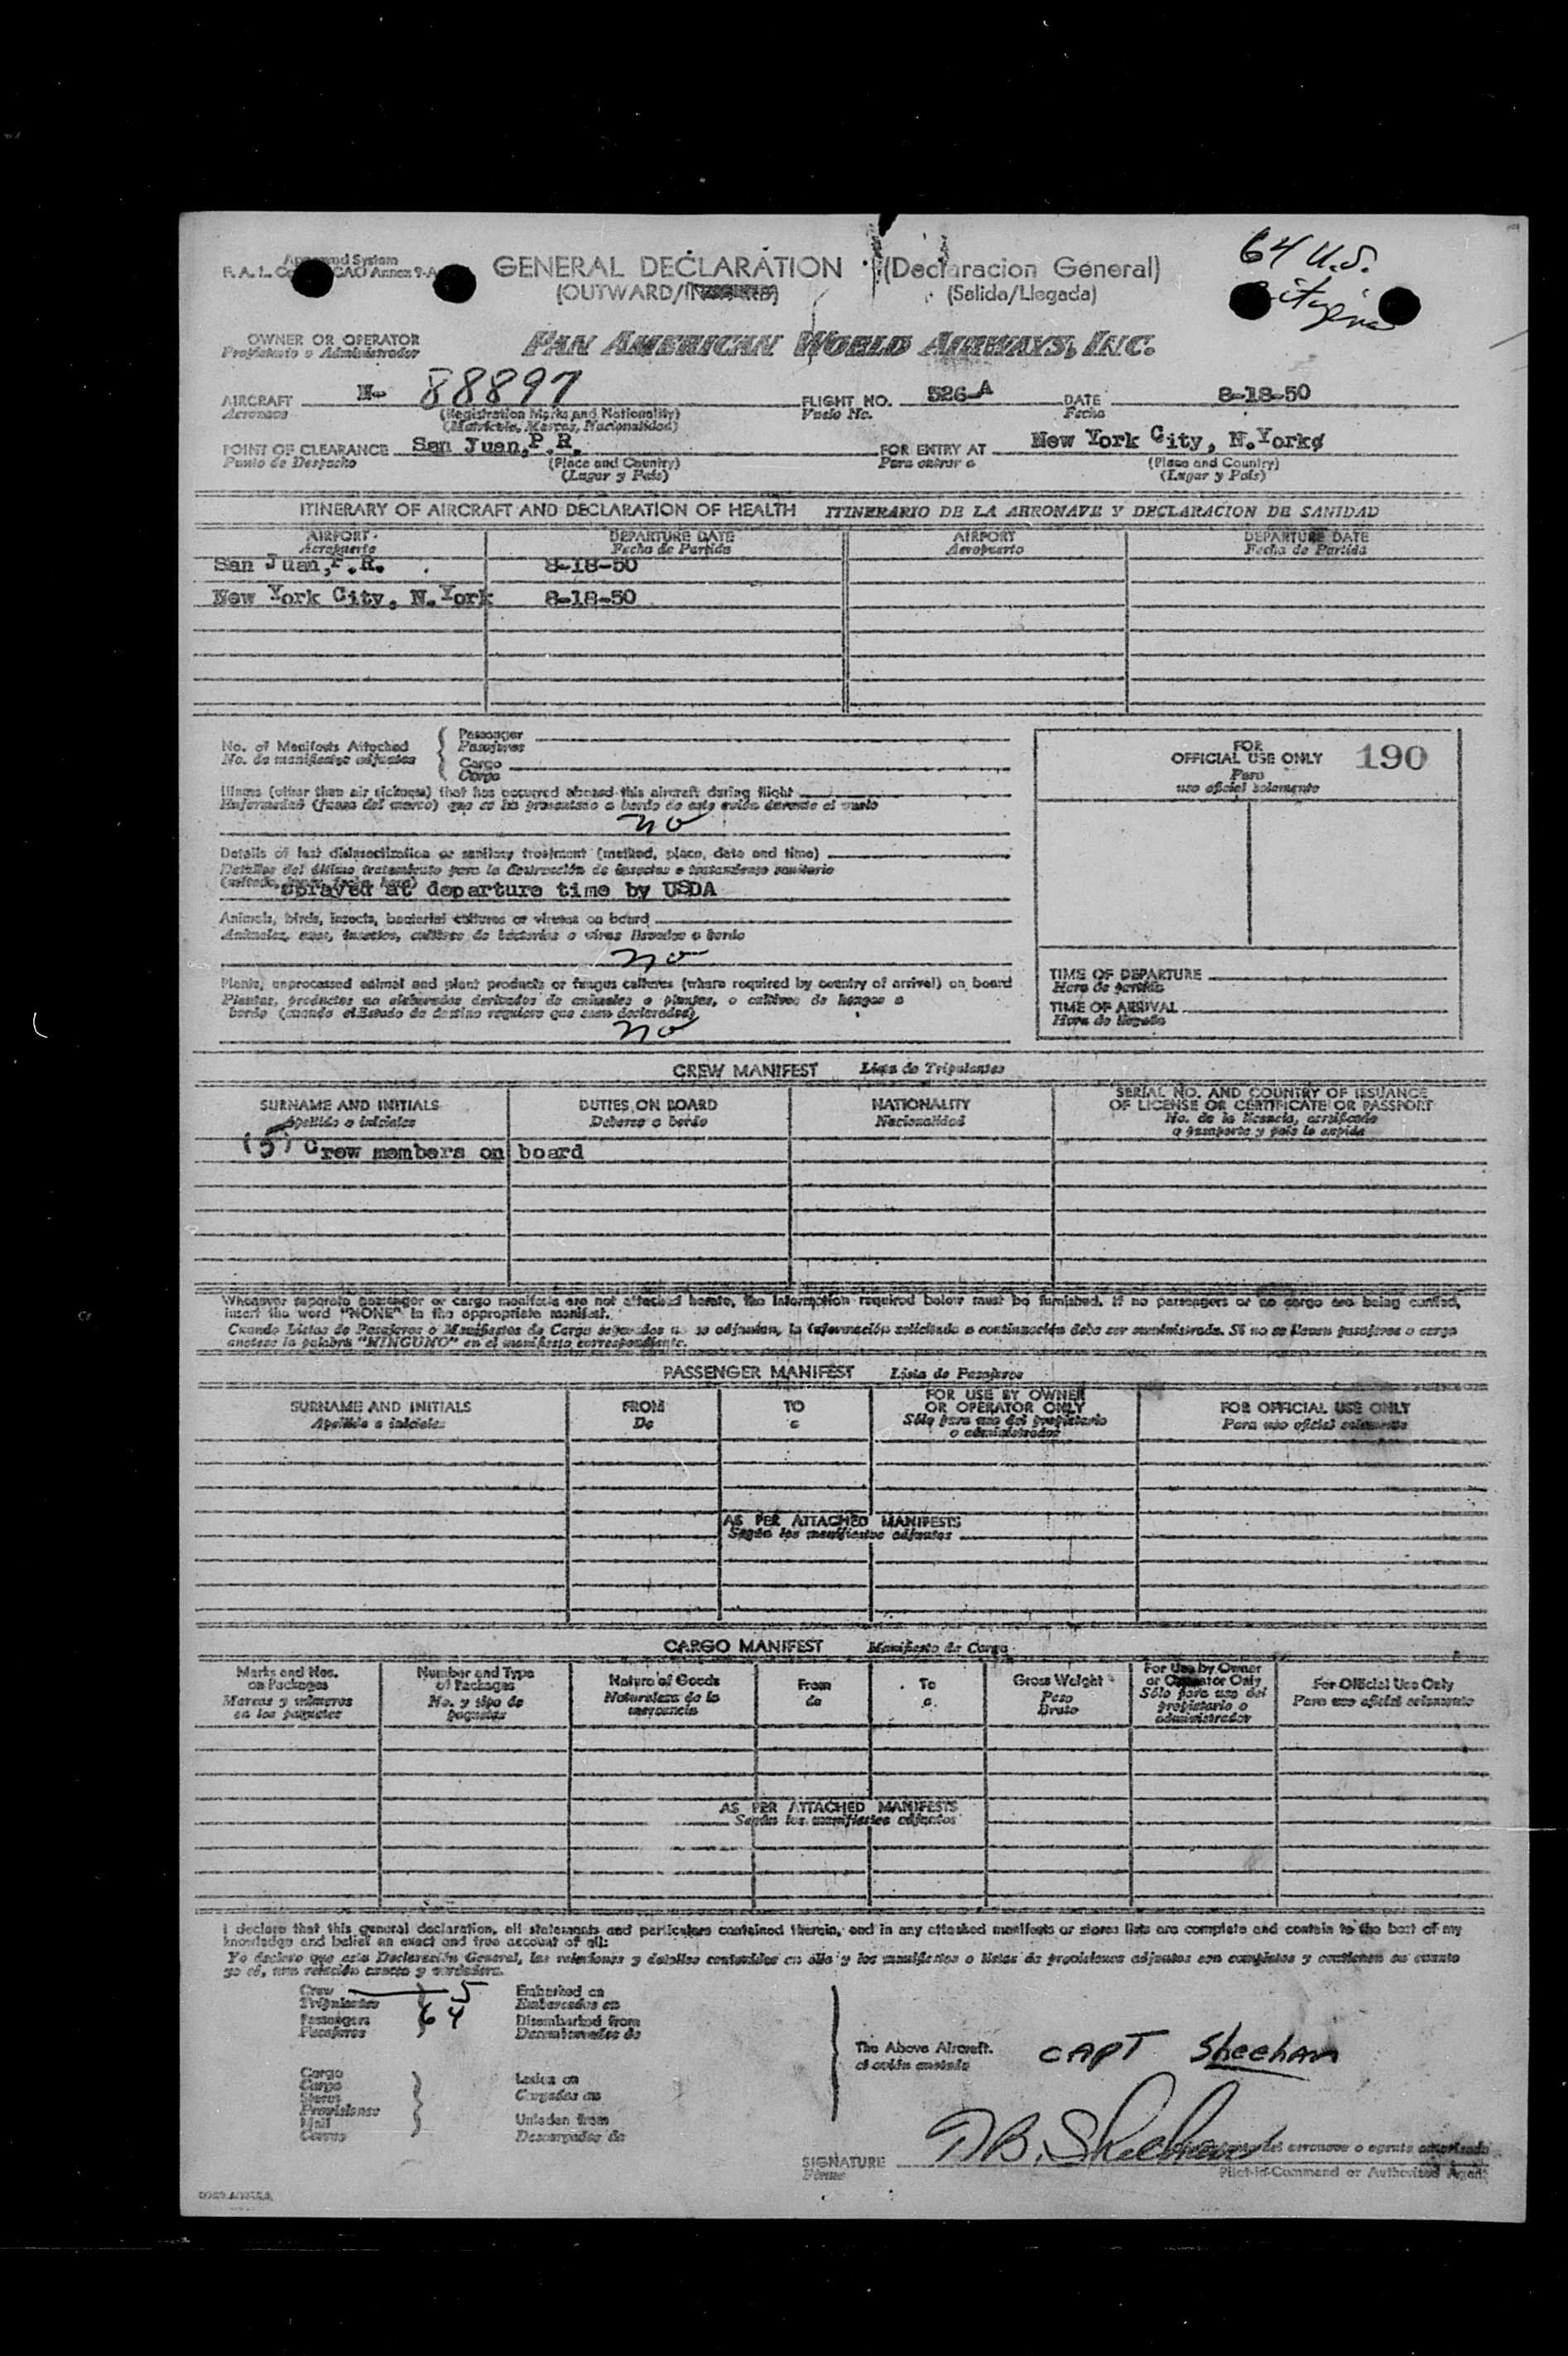 Approved System
F. A. L. Co ICAO Annex 9-A
GENERAL DECLARATION (Declaracion General)
(OUTWARD/INWARD) (Salida/Llegada)
64 U.S.
Citizens
OWNER OR OPERATOR
Propietario o Administrador
PAN AMERICAN WORLD AIRWAYS, INC.
AIRCRAFT N- 88897 FLIGHT NO. 526-A DATE 8-18-50
Aeronave (Registration Marks and Nationality) Vuelo No. Fecha
(Matricula, Marcas, Nacionalidad)
POINT OF CLEARANCE San Juan,P.R. FOR ENTRY AT New York City, N.York
Punto de Despacho (Place and Country) Para entrar a (Place and Country)
(Lugar y País) (Lugar y País)
ITINERARY OF AIRCRAFT AND DECLARATION OF HEALTH ITINERARIO DE LA AERONAVE Y DECLARACION DE SANIDAD
AIRPORT DEPARTURE DATE AIRPORT DEPARTURE DATE
Aeropuerto Fecha de Partida Aeropuerto Fecha de Partida
San Juan,P.R. 8-18-50
New York City, N.York 8-18-50
No. of Manifests Attached
No. de manifiestos adjuntos
Passenger
Pasajeros
Cargo
Carga
FOR
OFFICIAL USE ONLY 190
Para
uso oficial solamente
Illness (other than air sickness) that has occurred aboard this aircraft during flight
Enfermedad (fuera del mareo) que se ha presentado a bordo de este avión durante el vuelo
no
Details of last disinsectization or sanitary treatment (method, place, date and time)
Detalles del último tratamiento para la destrucción de insectos o tratamiento sanitario
(método, lugar, fecha, hora)
sprayed at departure time by USDA
Animals, birds, insects, bacterial cultures or viruses on board
Animales, aves, insectos, cultivos de bacterias o virus llevados a bordo
no
Plants, unprocessed animal and plant products or fungus cultures (where required by country of arrival) on board
Plantas, productos no elaborados derivados de animales o plantas, o cultivos de hongos a
bordo (cuando el Estado de destino requiere que sean declarados)
no
TIME OF DEPARTURE
Hora de partida
TIME OF ARRIVAL
Hora de llegada
CREW MANIFEST Lista de Tripulantes
SURNAME AND INITIALS DUTIES ON BOARD NATIONALITY SERIAL NO. AND COUNTRY OF ISSUANCE
OF LICENSE OR CERTIFICATE OR PASSPORT
Apellido o iniciales Deberes a bordo Nacionalidad No. de la licencia, certificado
o pasaporte y país lo expide
(5) Crew members on board
Whenever separate passenger or cargo manifests are not attached hereto, the information required below must be furnished. If no passengers or no cargo are being carried,
insert the word "NONE" in the appropriate manifest.
Cuando Listas de Pasajeros o Manifiestos de Carga separados no se adjuntan, la información solicitada a continuación debe ser suministrada. Si no se llevan pasajeros o carga
anotese la palabra "NINGUNO" en el manifiesto correspondiente.
PASSENGER MANIFEST Lista de Pasajeros
SURNAME AND INITIALS FROM TO FOR USE BY OWNER
OR OPERATOR ONLY FOR OFFICIAL USE ONLY
Apellido o iniciales De a Sólo para uso del propietario
o administrador Para uso oficial solamente
AS PER ATTACHED MANIFESTS
Según los manifiestos adjuntos
CARGO MANIFEST Manifiesto de Carga
Marks and Nos.
on Packages
Marcas y números
en los paquetes
Number and Type
of Packages
No. y tipo de
paquetes
Nature of Goods
Naturaleza de la
mercancía
From
de
To
a
Gross Weight
Peso
Bruto
For Use by Owner
or Operator Only
Sólo para uso del
propietario o
administrador
For Official Use Only
Para uso oficial solamente
AS PER ATTACHED MANIFESTS
Según los manifiestos adjuntos
I declare that this general declaration, all statements and particulars contained therein, and in any attached manifests or stores lists are complete and contain to the best of my
knowledge and belief an exact and true account of all:
Yo declaro que esta Declaración General, las relaciones y detalles contenidos en ella y los manifiestos o listas de provisiones adjuntos son completos y contienen en cuanto
yo sé, una relación exacta y verdadera.
Crew 5 Embarked on
Tripulantes Embarcados en
Passengers 64 Disembarked from
Pasajeros Desembarcados de
The Above Aircraft.
el avión anotado
CAPT Sheehan
Cargo
Carga
Stores
Provisiones
Mail
Correo
Laden on
Cargados en
Unladen from
Descargados de
SIGNATURE D B. Sheehan del aeronave o agente autorizado
Firma Pilot-in-Command or Authorized Agent